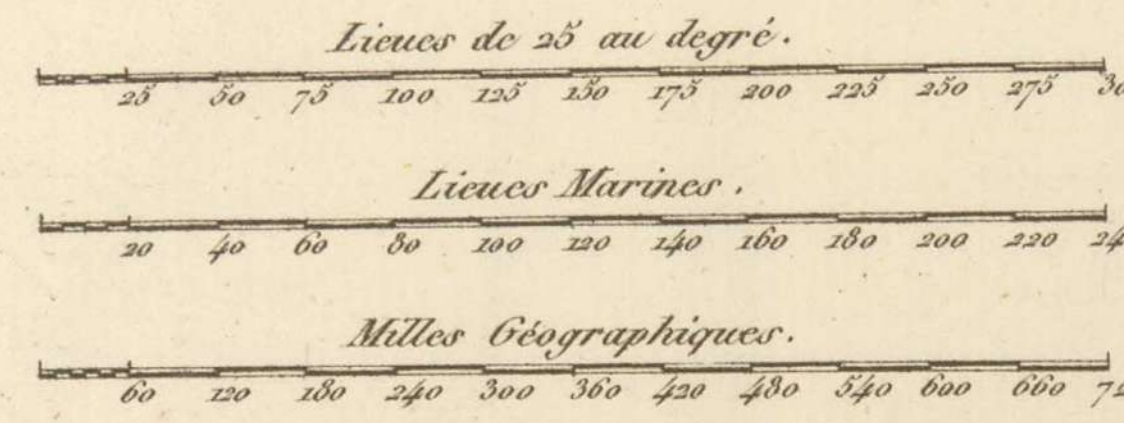 Lieues de 25 au degré.
25 50 75 100 125 150 175 200 225 250 275 30
Lieues Marines.
20 40 60 80 100 120 140 160 180 200 220 24
Milles Géographiques.
60 120 180 240 300 360 420 480 540 600 660 72